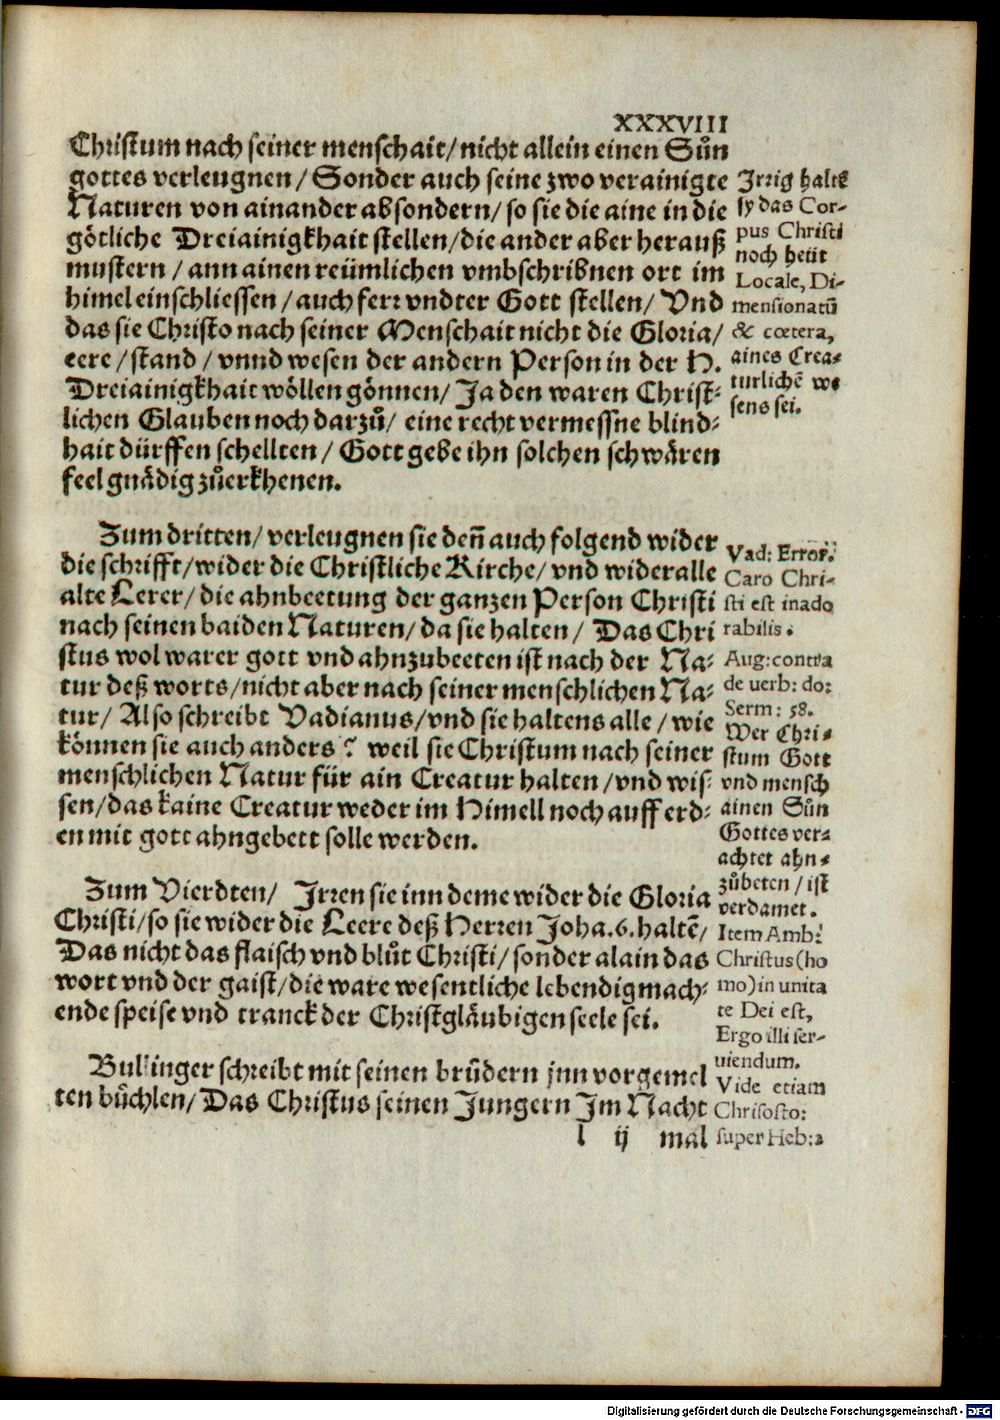 XXXVIII
Christum nach seiner menschait/ nicht allein einen Sůn
gottes verleugnen/ Sonder auch seine zwo verainigte
Naturen von ainander absondern/ so sie die aine in die
götliche Dreiainigkhait stellen/ die ander aber herauß
mustern/ ann ainen reümlichen vmbschribnen ort im
himel einschliessen/ auch ferr vndter Gott stellen/ Vnd
das sie Christo nach seiner Menschait nicht die Gloria/
eere/ stand/ vnnd wesen der andern Person in der H.
Dreiainigkhait wöllen gönnen/ Ja den waren Christ⸗
lichen Glauben noch darzů/ eine recht vermessne blind⸗
hait dürffen schellten/ Gott gebe ihn solchen schwären
feel gnädig zůerkhenen.
Irrig halte
sy das Cor-
pus Christi
noch heüt
Locale, Di-
mensionatū
& cœtera,
aines Crea⸗
turlichē we
sens sei.
Zum dritten/ verleugnen sie deñ auch folgend wider
die schrifft/ wider die Christliche Kirche/ vnd wider alle
alte Lerer/ die ahnbeetung der ganzen Person Christi
nach seinen baiden Naturen/ da sie halten/ Das Chri
stus wol warer gott vnd ahnzubeeten ist nach der Na⸗
tur deß worts/ nicht aber nach seiner menschlichen Na⸗
tur/ Also schreibt Vadianus/ vnd sie haltens alle/ wie
können sie auch anders? weil sie Christum nach seiner
menschlichen Natur für ain Creatur halten/ vnd wis⸗
sen/ das kaine Creatur weder im Himell noch auff erd⸗
en mit gott ahngebett solle werden.
Vad: Error:
Caro Chri-
sti est inado
rabilis.
Aug: contra
de uerb: do:
Serm: 58.
Wer Chri⸗
stum Gott
vnd mensch
ainen Sůn
Gottes ver⸗
achtet ahn⸗
zůbeten/ ist
verdamet.
Item Amb:
Christus (ho
mo) in unita
te Dei est,
Ergo illi ser-
uiendum.
Vide etiam
Chrisosto:
super Heb:2
Zum Vierdten/ Irren sie inn deme wider die Gloria
Christi/ so sie wider die Leere deß Herren Joha. 6. haltē/
Das nicht das flaisch vnd blůt Christi/ sonder alain das
wort vnd der gaist/ die ware wesentliche lebendigmach⸗
ende speise vnd tranck der Christgläubigen seele sei.
Bullinger schreibt mit seinen brůdern jnn vorgemel
ten bůchlen/ Das Christus seinen Jungern Im Nacht
l ij mal
Digitalisierung gefördert durch die Deutsche Forschungsgemeinschaft - DFG